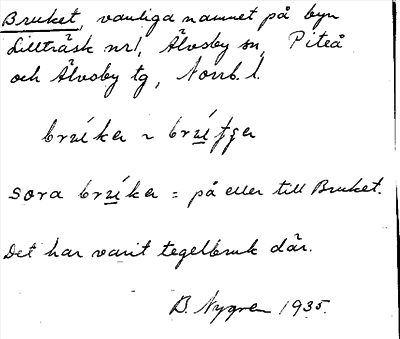 Bruket, vanliga namnet på byn
Lillträsk nr1, Älvsby sn, Piteå
och Älvsby tg, Norrb. l.
sora = på eller till Bruket.
Det har varit tegelbruk där.
B. Nygren 1935.